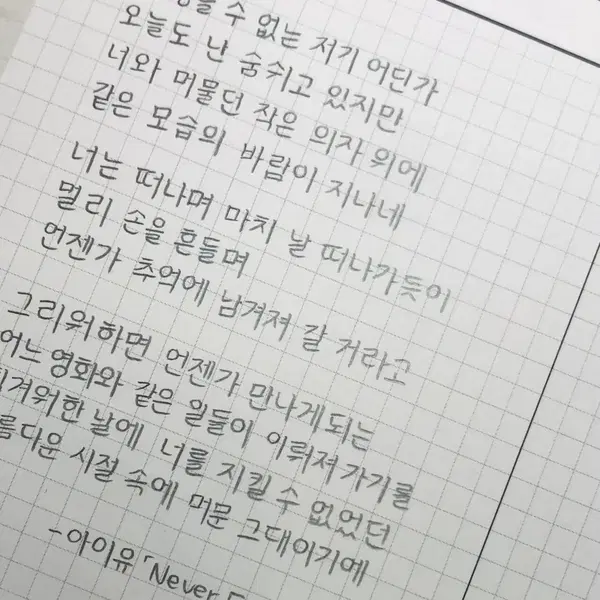 수 없는 저기 어딘가
오늘도 난 숨쉬고 있지만
너와 머물던 작은 의자 위에
같은 모습의 바람이 지나네
너는 떠나며 마치 날 떠나가듯이
멀리 손을 흔들며
언젠가 추억에 남겨져 갈 거라고
그리워하면 언젠가 만나게되는
어느 영화와 같은 일들이 이뤄져가기를
겨워한 날에 너를 지킬 수 없었던
름다운 시절 속에 머문 그대이기에
-아이유 「Never